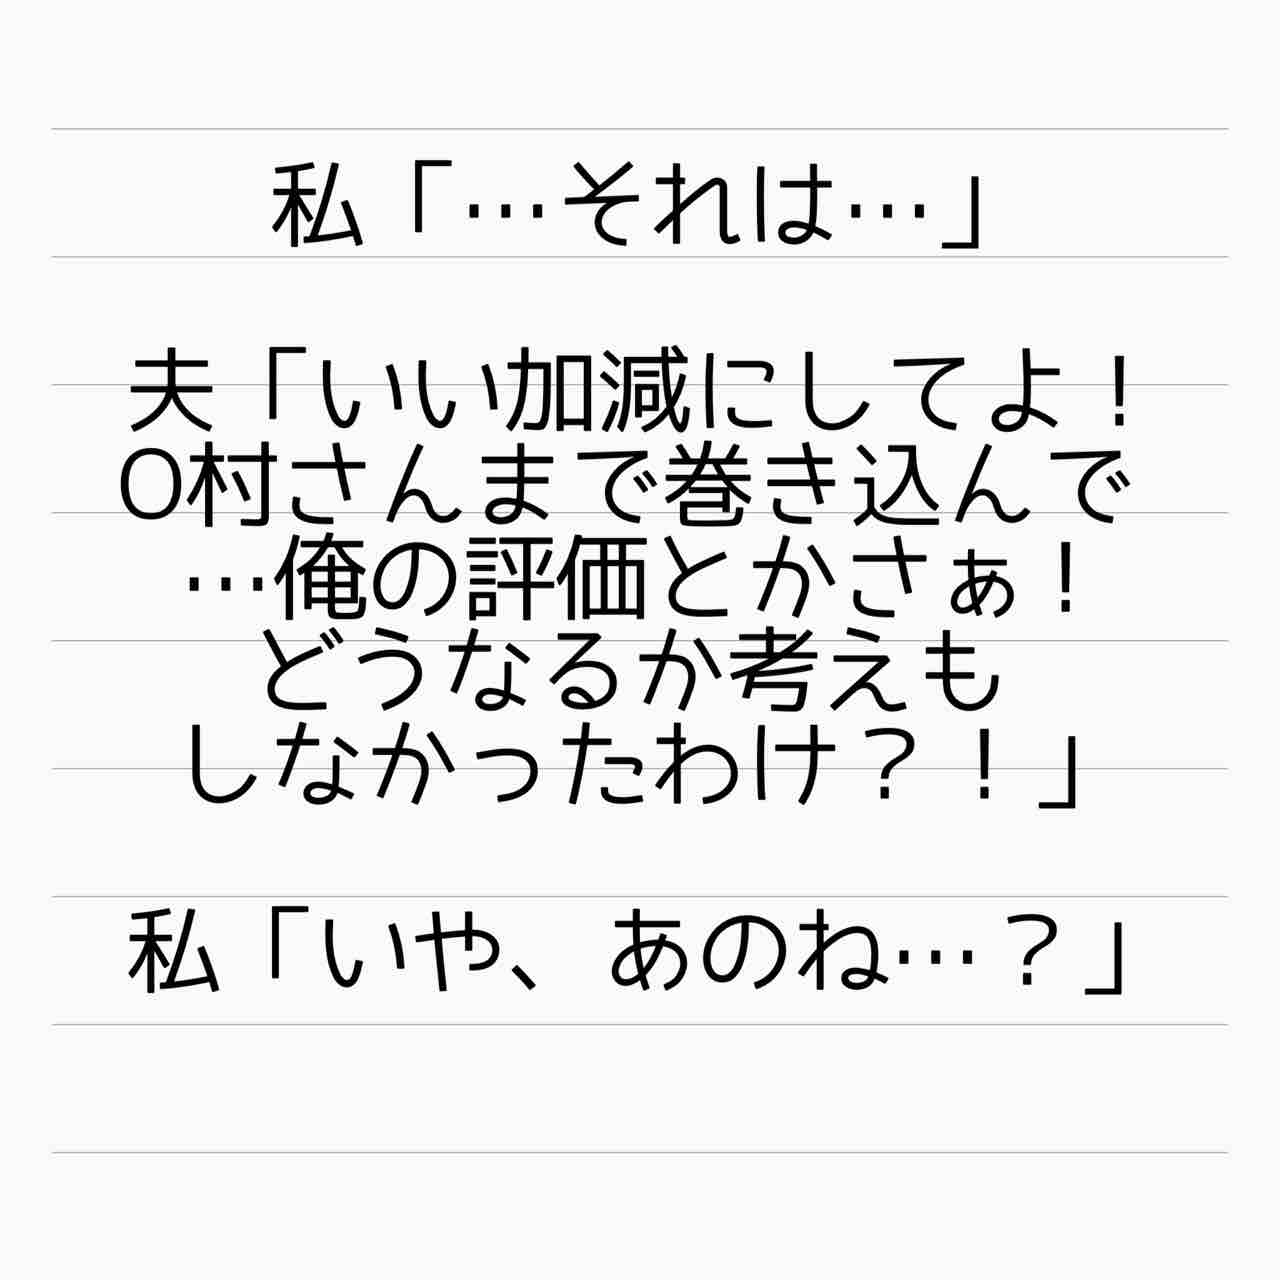 私「…それは…」
夫「いい加減にしてよ！
O村さんまで巻き込んで
…俺の評価とかさぁ！
どうなるか考えも
しなかったわけ？！」
私「いや、あのね…？」